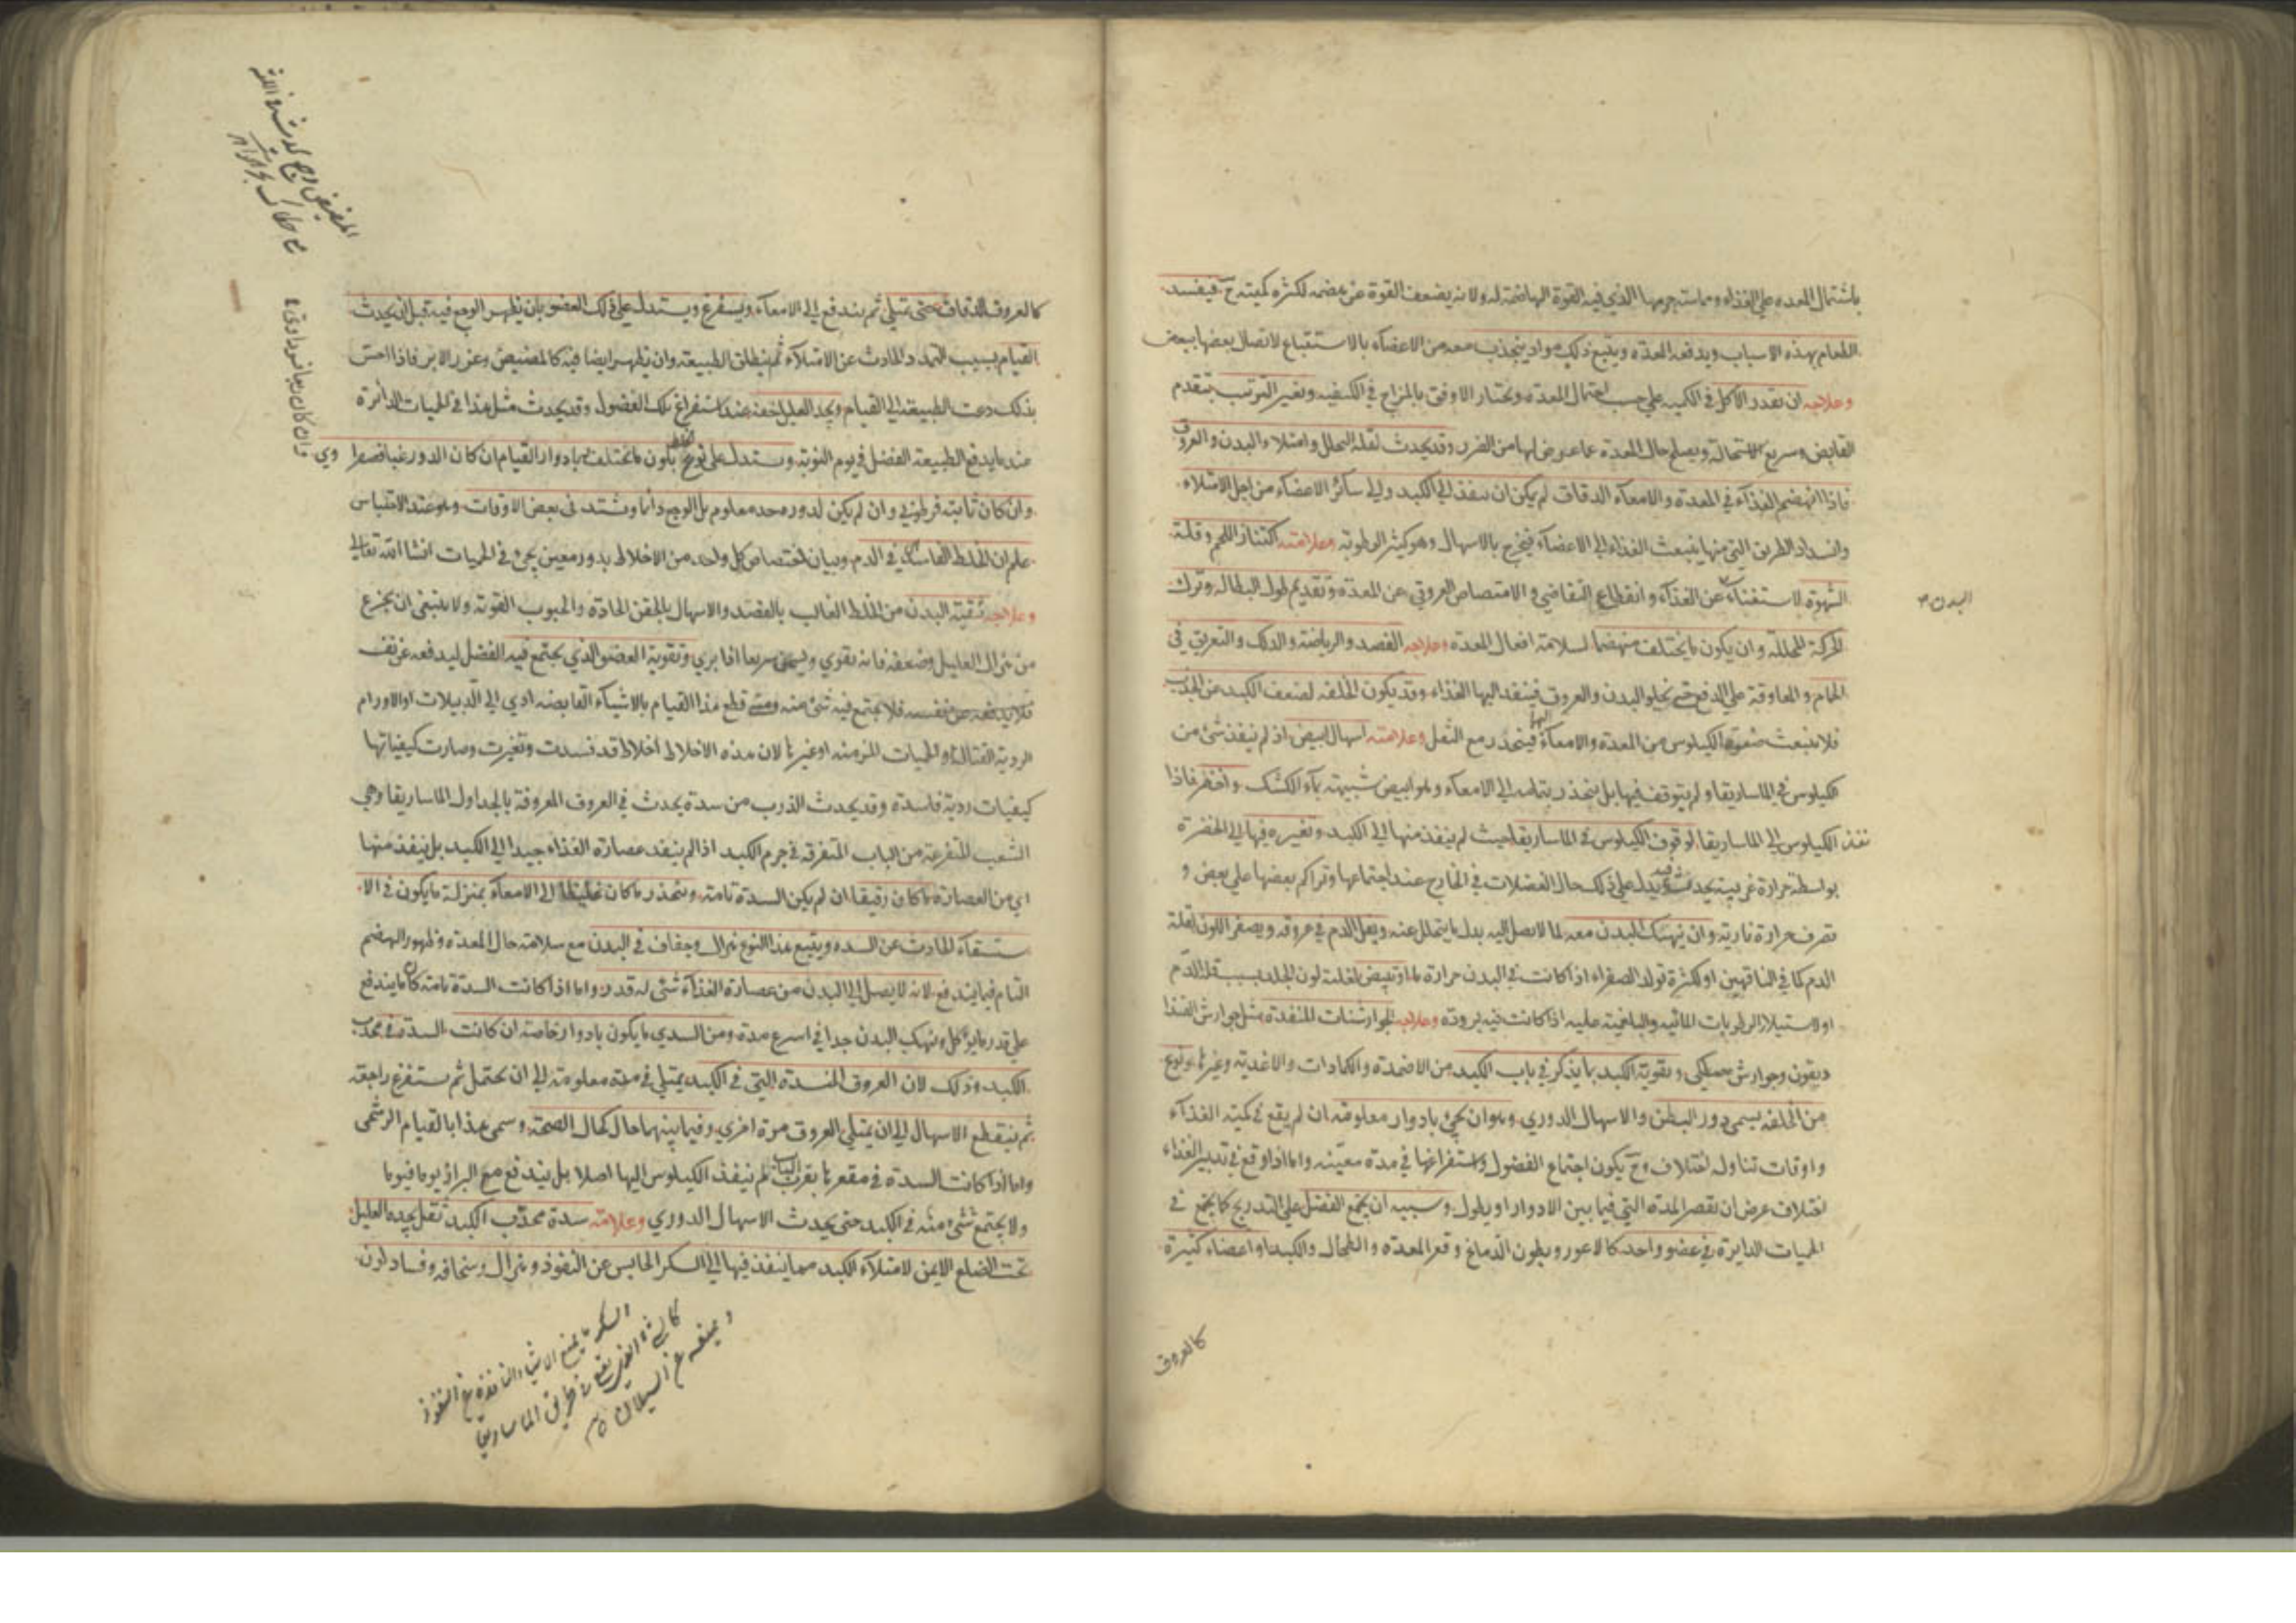 باشتمال المعده على الغذاء ومماسته جرمها الذي فيه القوة الهاضمة له ولانه يضعف القوة عن هضمه لكثرة كميته ح فيفسد
الطعام بهذه الاسباب ويدفعه المعدة ويتبع ذلك مواد ينجذب معه من الاعضاء بالاستتباع لاتصال بعضها ببعض
وعلاجه ان يقدر الاكل في الكميه على حسب احتمال المعدة ويختار الاوفق بالمزاج في الكيفيه ويغير الترتيب بتقدم
القابض وسريع الاستحالة ويصلح حال المعدة عما عرض لها من الضرر وقد يحدث لقلة التحلل وامتلاء البدن والعروق
فاذا انهضم الغذاء في المعدة والامعاء الدقاق لم يكن ان ينفذ الى الكبد والى سائر الاعضاء من اجل الامتلاء
وانسداد الطريق التي منها ينبعث الغذاء الى الاعضاء فيخرج بالاسهال وهو كثير الرطوبة وعلامته اكتناز اللحم وقلة
الشهوة لاستغناء عن الغذاء وانقطاع التقاضي والامتصاص العروقي عن المعدة وتقديم طول البطاله وترك
البدن
الحركة المحللة وان يكون ما يختلف منهضما لسلامة افعال المعدة وعلاجه الفصد والرياضة والدلك والتعريق في
الحمام والمعاونة على الدفع حتى يخلو البدن والعروق فينفذ اليها الغذاء وقد يكون الخلفه لضعف الكبد عن الجذب
فلا ينبعث صفوة الكيلوس من المعدة والامعاء اليها فينحدر مع الثفل وعلامته اسهال ابيض اذ لم ينفذ شئ من
الكيلوس في الماساريقا ولم يتوقف فيها بل ينحدر بتمامه الى الامعاء وهو ابيض شبيه بماء الكشك واخضر فاذا
نفذ الكيلوس الى الماساريقا لوقوف الكيلوس في الماساريقا حيث لم ينفذ منها الى الكبد وتغيره فيها الى الخضرة
بواسطة حرارة غريبة يحدث فيه يدل على ذلك حال الفضلات في الخارج عند اجتماعها وتراكم بعضها على بعض و
تصرف حرارة نارية وان ينهك البدن معه لما لا يصل اليه بدل ما يتحلل عنه ويقل الدم في عروقه ويصفر اللون لقلة
الدم كما في الناقهين او لكثرة تولد الصفراء اذا كانت في البدن حرارة ما او تبيض لغلبة لون الجلد بسبب قلة الدم
او لاستيلاء الرطوبات المائيه والبلغمية عليه اذا كانت فيه برودة وعلاجه الجوارشنات المنفذة مثل جوارش الفنذا
ديقون وجوارش مصطكى وتقوية الكبد بما يذكر في باب الكبد من الاضمدة والكمادات والاغدية وغيرها ونوع
من الخلفه يسمى دور البطن والاسهال الدوري وهو ان يجئ بادوار معلومة ان لم يقع في كمية الغذاء
واوقات تناوله اختلاف وح يكون اجتماع الفضول واستفراغها في مدة معينه واما اذا وقع في تدبير الغذاء
اختلاف عرض ان تقصر المدة التي فيما بين الادوار او يطول وسببه ان يجمع الفضل على التدريج كما يجمع في
الحميات الدايرة في عضو واحد كالاعور وبطون الدماغ وقعر المعدة والطحال والكبد او اعضاء كثيرة
كالعروق
كالعروق الدقاق حتى تمتلي ثم يندفع الى الامعاء ويستفرغ ويستدل على ذلك العضو بان يظهر الوجع فيه قبل ان يحدث
القيام بسبب التمدد الحادث عن الامتلاء ثم ينطلق الطبيعة وان يظهر ايضا فيه كالمضيض وغرز الابر فاذا احس
بذلك دعت الطبيعة الى القيام ويجد العليل خفة عند استفراغ تلك الفضول وقد يحدث مثل هذا في الحميات الدائرة
عند ما يدفع الطبيعة الفضل في يوم النوبة ويستدل على نوع الخلط بلون ما يختلف بادوار القيام ان كان الدور غبا فصفراوي
وان كان ثابتة فبلغمي وان لم يكن لدوره حد معلوم بل الوجع دائما ويشتد في بعض الاوقات وهو عند الاحتباس
علم ان الخلط الفاسد في الدم وبيان اختصاص كل واحد من الاخلاط بدور معين يجئ في الحميات انشا الله تعالى
وعلاجه تنقية البدن من الخلط الغالب بالفصد والاسهال بالحقن الحادة والحبوب القوية ولا ينبغي ان يجزع
من هزال العليل وضعفه فانه يقوي ويسمن سريعا اذا بري وتقوية العضو الذي يجتمع فيه الفضل ليدفعه عن نفسه
فلا يجتمع فيه شئ منه ومتى قطع هذا القيام بالاشياء القابضه ادي الى الدبيلات او الاورام
الردية القتالة والحميات المزمنه او غيرها لان هذه الاخلاط اخلاط قد فسدت وتغيرت وصارت كيفياتها
كيفيات ردية فاسدة وقد يحدث الذرب من سدة يحدث في العروق المعروفة بالجداول الماساريقا وهي
الشعب المتفرعة من الباب المتفرقه في جرم الكبد اذا لم ينفد عصارة الغذاء جيدا الى الكبد بل ينفذ منها
اي من العصارة ما كان رقيقا ان لم يكن السدة تامة وينحدر ما كان غليظا الى الامعاء بمنزلة ما يكون في الا
ستسقاء الحادث عن السده ويتبع هذا النوع هزال وجفاف في البدن مع سلامة حال المعدة وظهور الهضم
التام فيما يندفع لانه لا يصل الى البدن من عصارة الغذاء شئ له قدر واما اذا كانت السدة تامة كان ما يندفع
على قدر ما يؤكل وينهك البدن جدا في اسرع مدة ومن السددي ما يكون بادوار خاصة ان كانت السدة في محدب
الكبد وذلك لان العروق المنسدة التي في الكبد يمتلي في مدة معلومة الى ان يحتمل ثم ستفرغ راجعة
ثم ينقطع الاسهال الى ان يمتلي العروق مرة اخري وفيما بينهما حال كمال الصحة وسمي هذا بالقيام الرشحي
واما اذا كانت السدة في مقعرها بقرب الباب لم ينفذ الكيلوس اليها اصلا بل يندفع مع البراز يوما فيوما
ولا يجتمع شئ منه في الكبد حتى يحدث الاسهال الدوري وعلامته سدة محدب الكبد ثقل يجده العليل
تحت الضلع الايمن لامتلاء الكبد مما ينفذ فيها الى السكر الحابس عن النفوذ وهزال وسخافه وفساد لون
السكر ما يمنع الاشياء النافذة عن النفوذ
طريق الماساريقا
ويمنعه عن السيلان